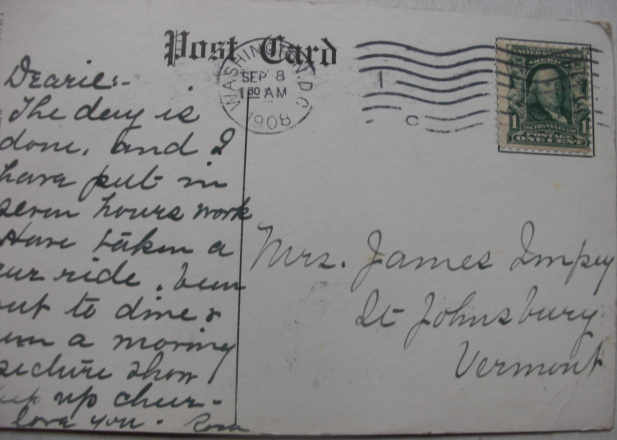 Post Card
WASHINGTON, D.C.
SEP 8
1 30 AM
1908
1
C
1 1
POSTAGE
ONE CENT
Dearie:-
The day is
done, and I
have put in
seven hours work
Have taken a
car ride, been
out to dine &
seen a moving
picture show
keep up cheer-
love you. Rosa
Mrs. James Impey
St Johnsbury
Vermont